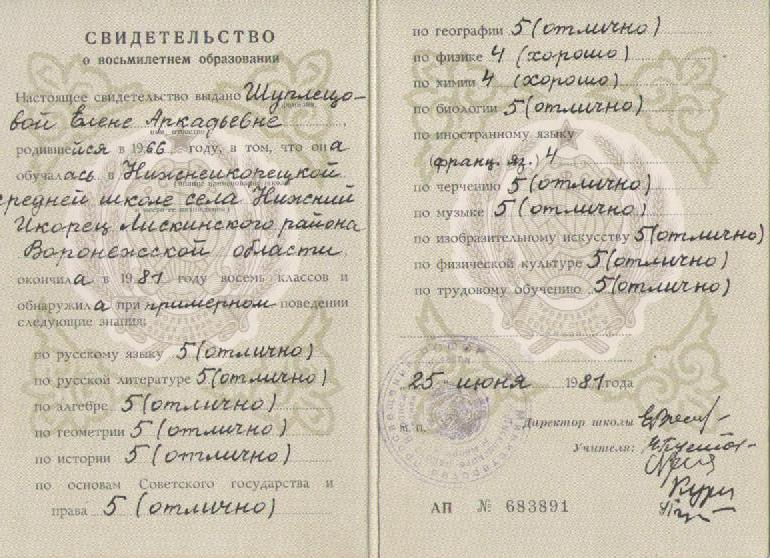 СВИДЕТЕЛЬСТВО
о восьмилетнем образовании
Настоящее свидетельство выдано Шуплецо-
вой Елене Аркадьевне
родившейся в 1966 году, в том, что она
обучалась в Нижнеикорецкой
средней школе села Нижний
Икорец Лискинского района
Воронежской области
окончила в 1981 году восемь классов и
обнаружила при примерном поведении
следующие знания:
по русскому языку 5 (отлично)
по русской литературе 5 (отлично)
по алгебре 5 (отлично)
по геометрии 5 (отлично)
по истории 5 (отлично)
по основам Советского государства и
права 5 (отлично)
по географии 5 (отлично)
по физике 4 (хорошо)
по химии 4 (хорошо)
по биологии 5 (отлично)
по иностранному языку
(франц. яз.) 4
по черчению 5 (отлично)
по музыке 5 (отлично)
по изобразительному искусству 5 (отлично)
по физической культуре 5 (отлично)
по трудовому обучению 5 (отлично)
25 июня 1981 года
м. п.
Директор школы
Учителя:
АП № 683891